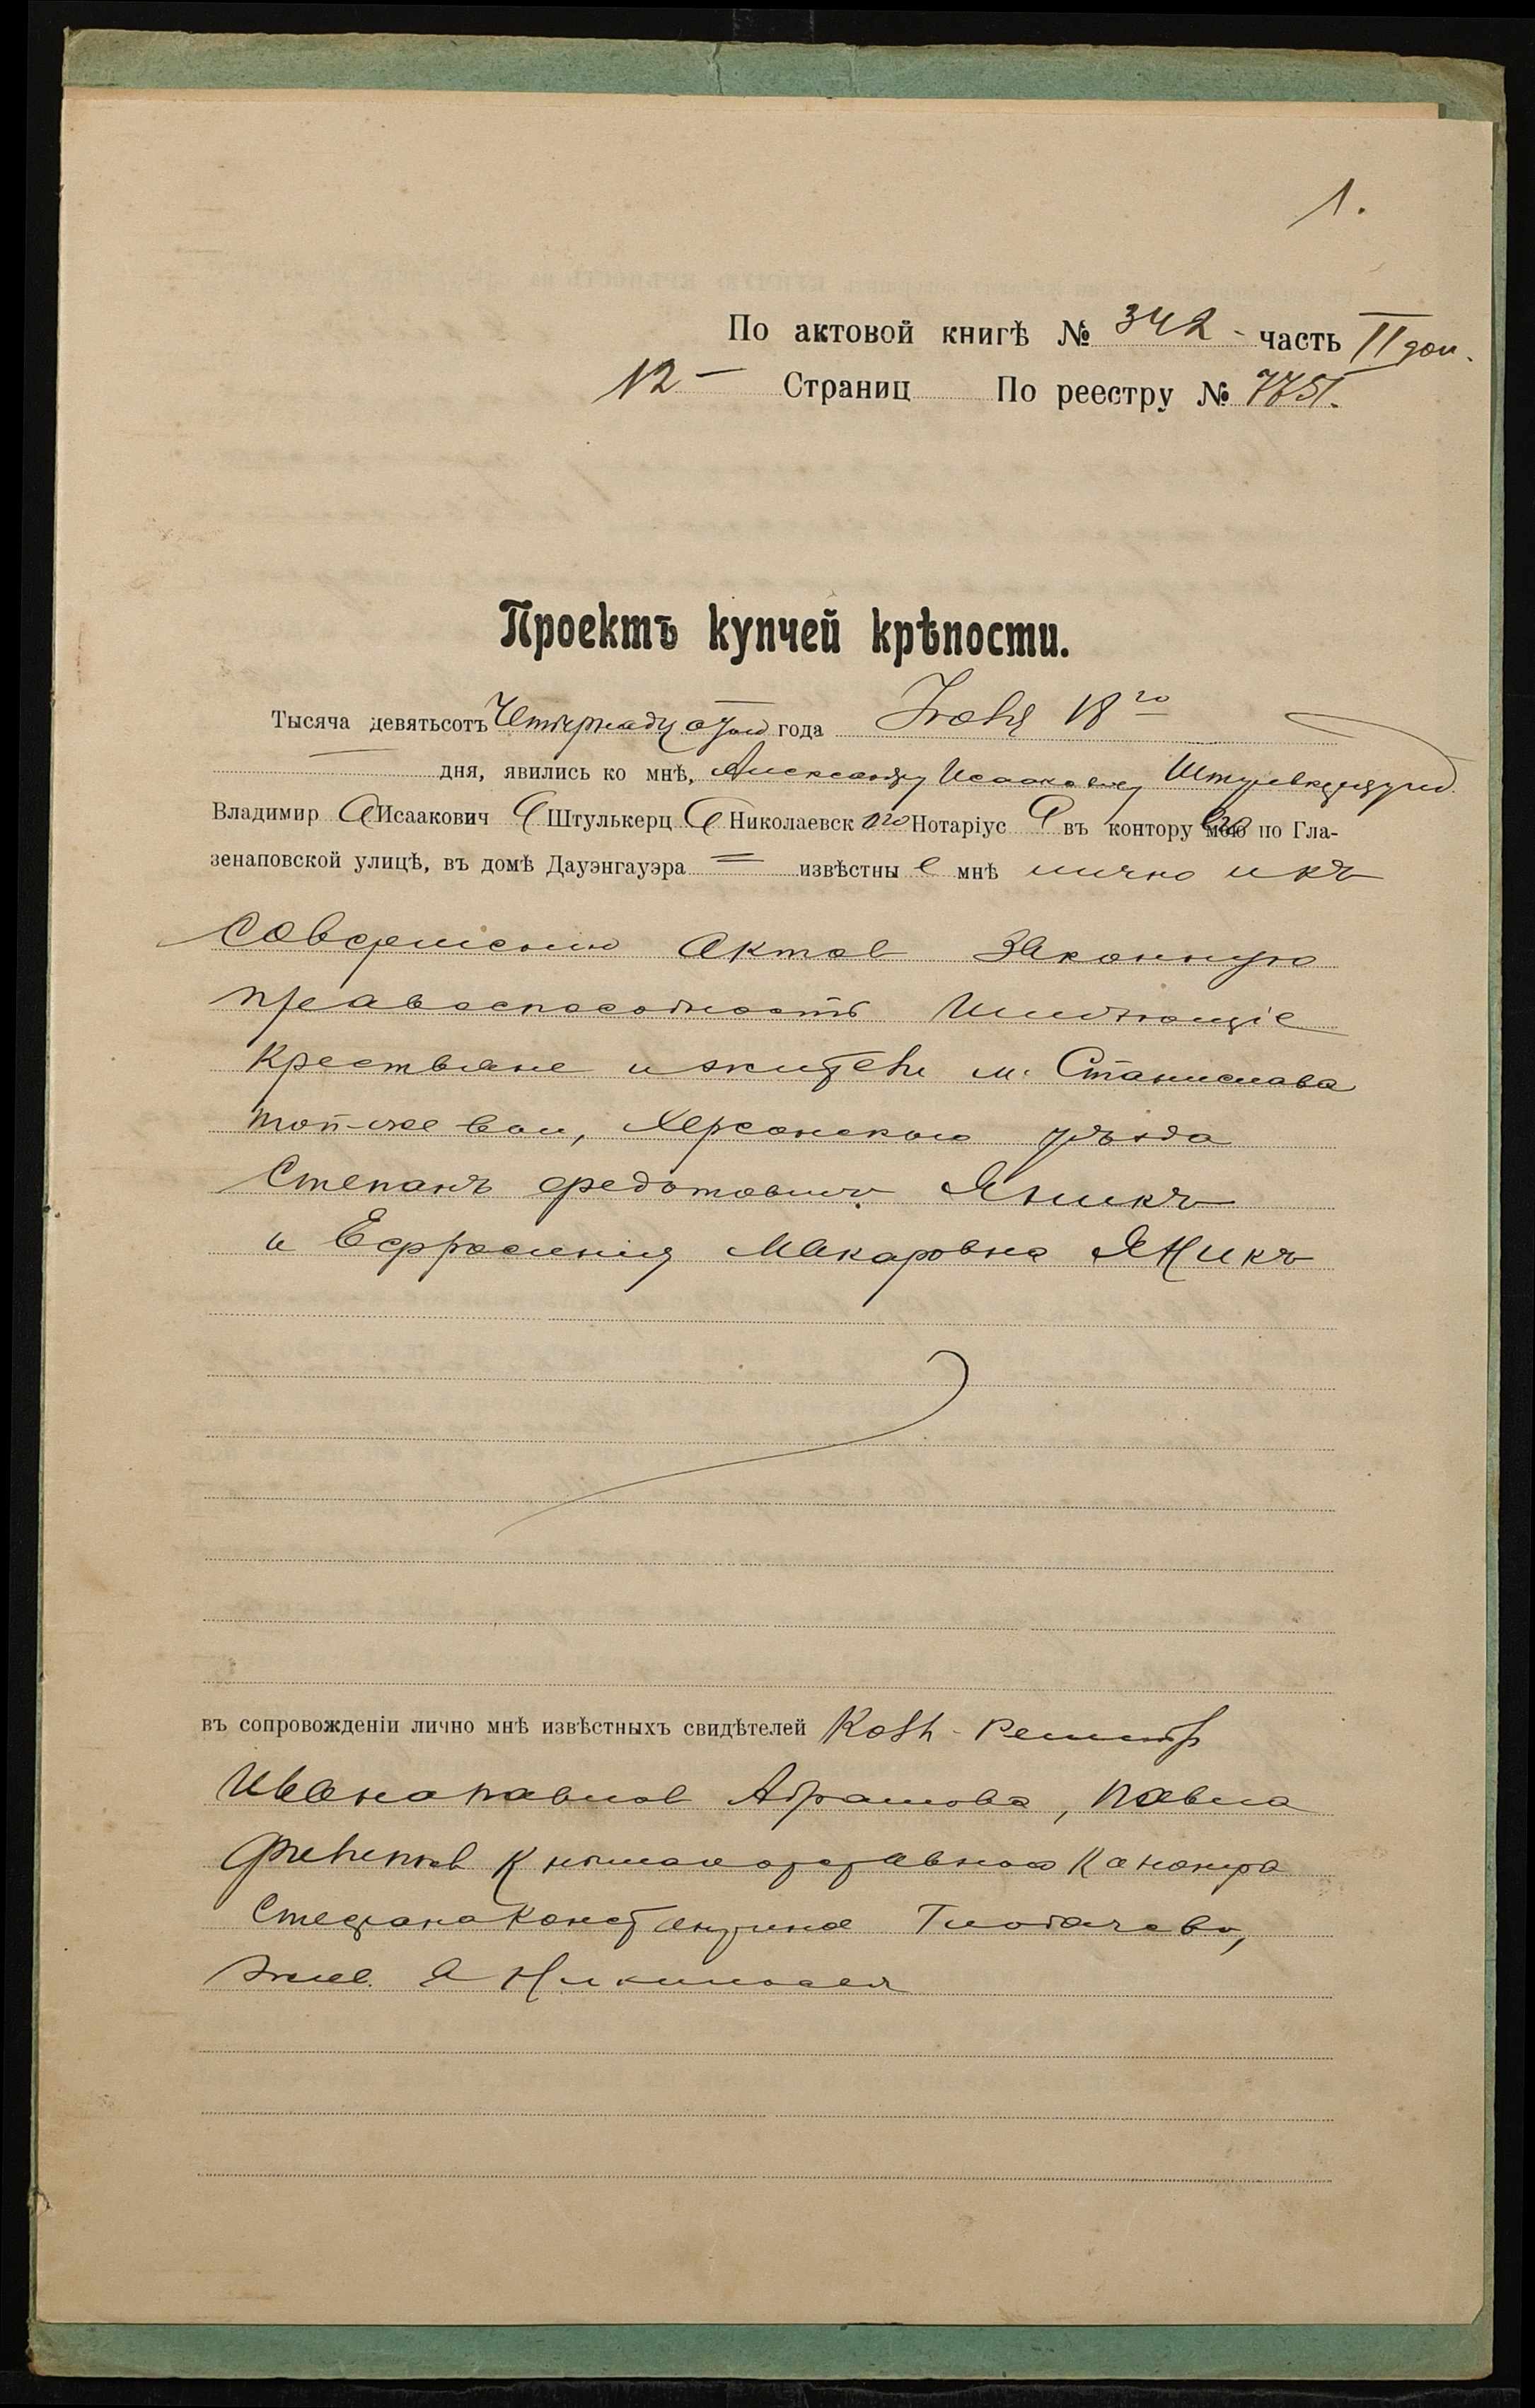 1.
По актовой книгѣ № 342 - часть II доп.
12 - Страниц По реестру № 7751.
Проектъ купчей крѣпости.
Тысяча девятьсотъ Четырнадцатом года Іюня 18го
дня, явились ко мнѣ, Александру Исааковичу
Владимир а Исаакович а Штулькерц а Николаевск ого Нотаріус а въ контору его по Гла-
зенаповской улицѣ, въ домѣ Дауэнгауэра = извѣстны е мнѣ лично и къ
совершению актов законную
правоспособность имѣющіе
крестьяне и жители м. Станислава
той-же вол., Херсонского уѣзда
Степанъ Федотовичъ Яникъ
и Ефросиния Макаровна Яникъ
въ сопровожденіи лично мнѣ извѣстныхъ свидѣтелей Колл-
Ивана Павлов Абрамова, Павла
Стефана Константинов